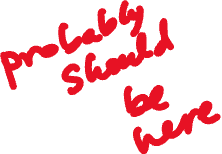 probably
should
be
here